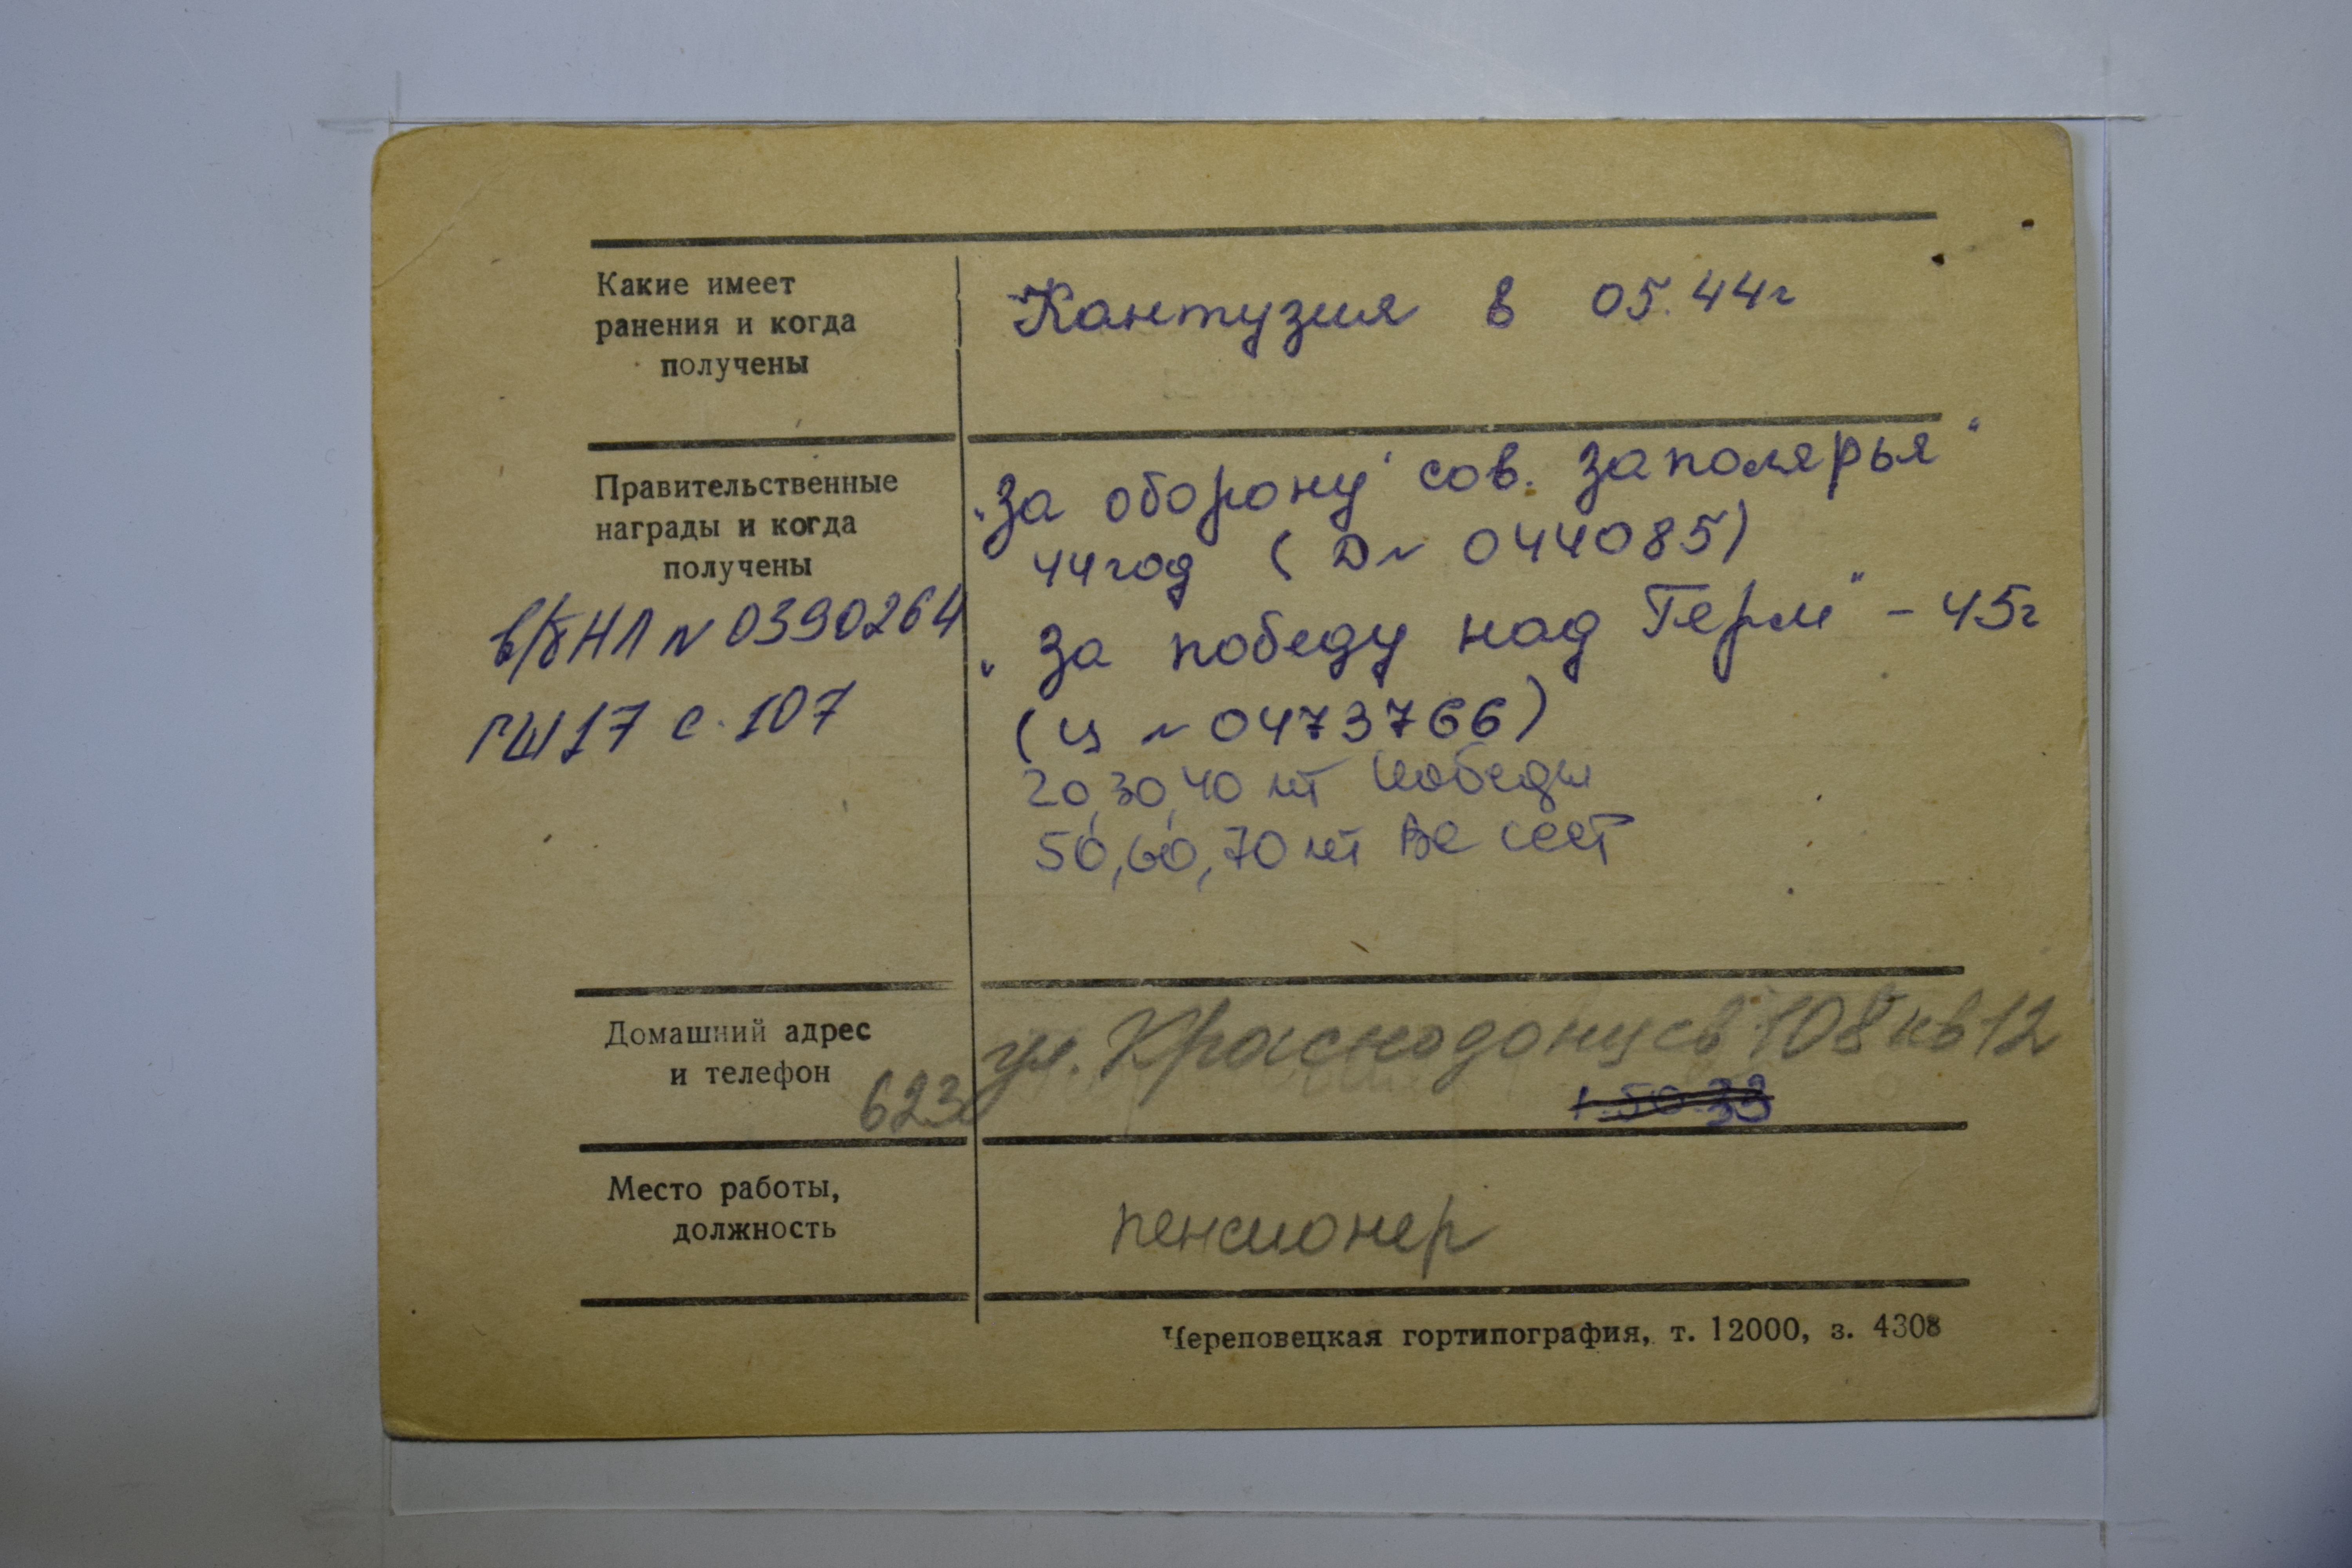 Какие имеет
ранения и когда
получены
Кантузия в 05.44г
Правительственные
награды и когда
получены
в/б НЛ N 0390264
ГШ 17 с. 107
"За оборону сов. Заполярья"
44 год ( D N 044085)
"За победу над Герм" - 45г
(Ц N 0473766)
20, 30, 40 лет Победы
50, 60, 70 лет ВС СССР
Домашний адрес
и телефон
623
ул. Краснодонцев 108 кв 12
Место работы,
должность
пенсионер
Череповецкая гортипография, т. 12000, з. 4308